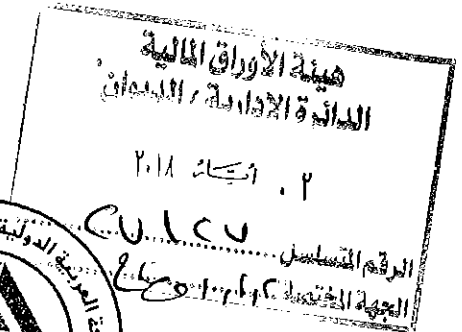 هيئة الأوراق المالية
الدائرة الإدارية / الديوان
٠٢ أيار ٢٠١٨
الرقم المتسلسل ٢٧١٢٧
الجهة المختصة
العربية الدولية